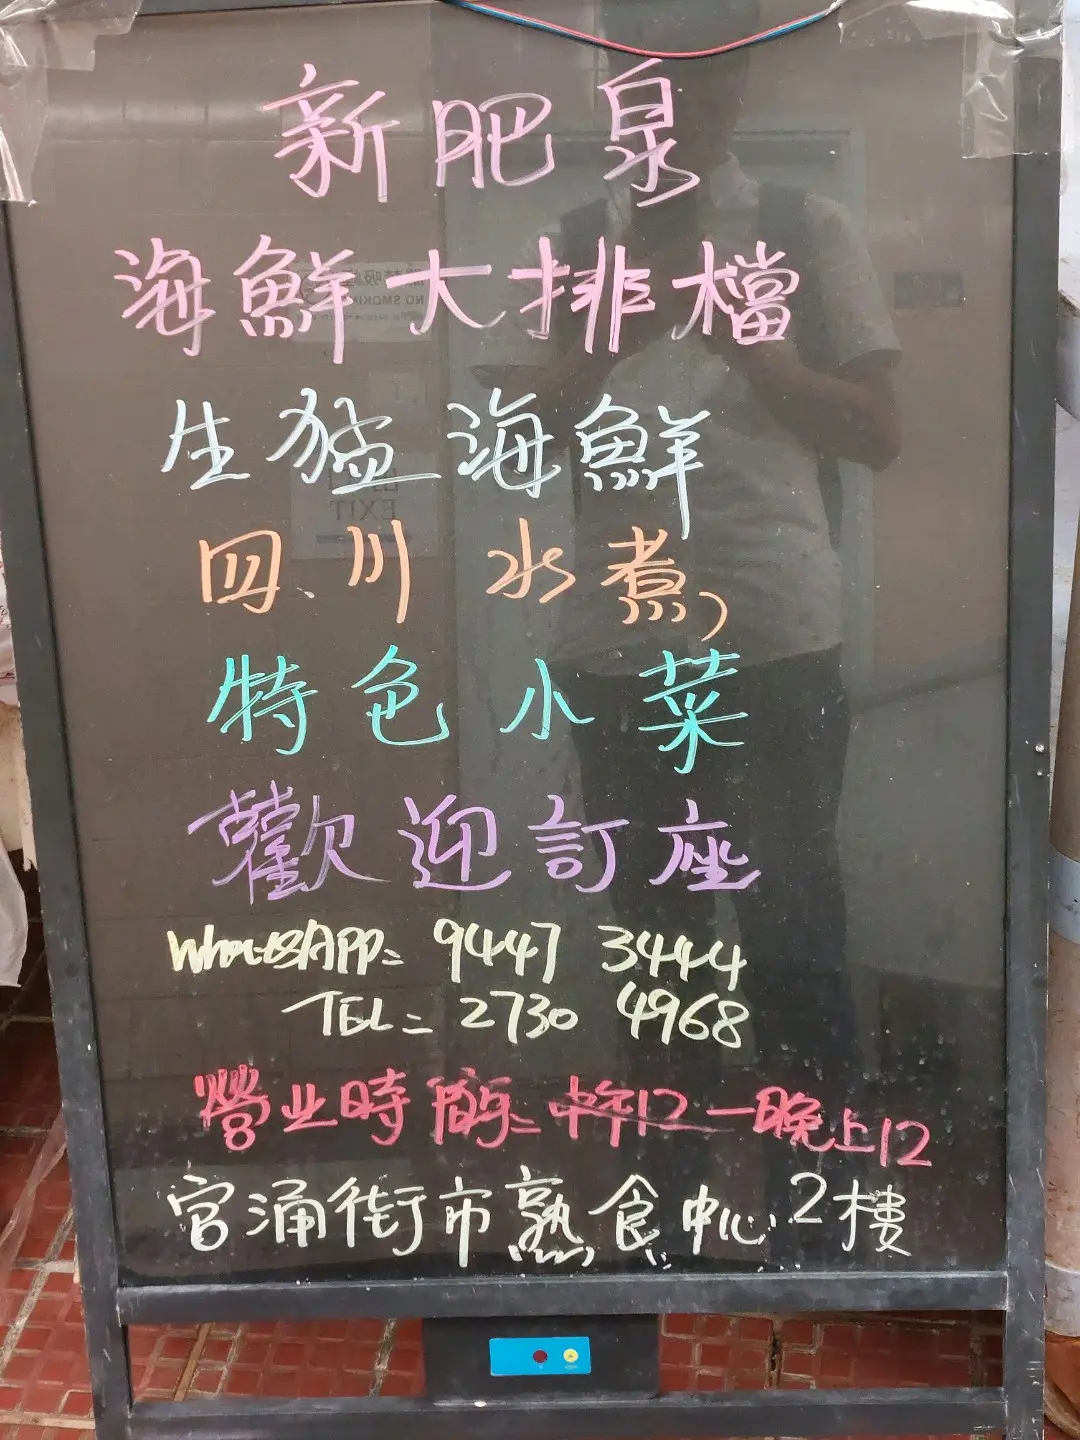 新肥泉
海鮮大排檔
生猛海鮮
四川水煮
特色小菜
歡迎訂座
WhatsAPP= 9447 3444
TEL= 2730 4968
營业時間= 中午12—晚上12
官涌街市熟食中心 2樓